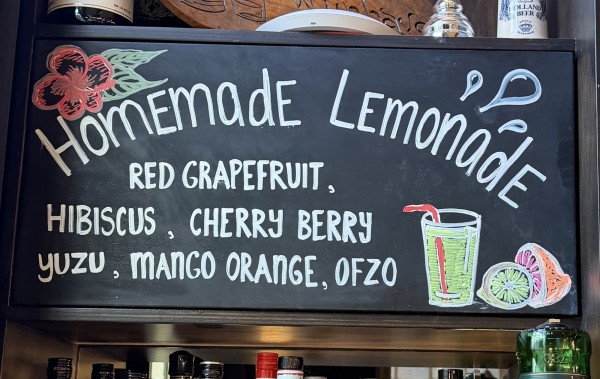 Homemade Lemonade
RED GRAPEFRUIT,
HIBISCUS, CHERRY BERRY
YUZU, MANGO ORANGE, OFZO